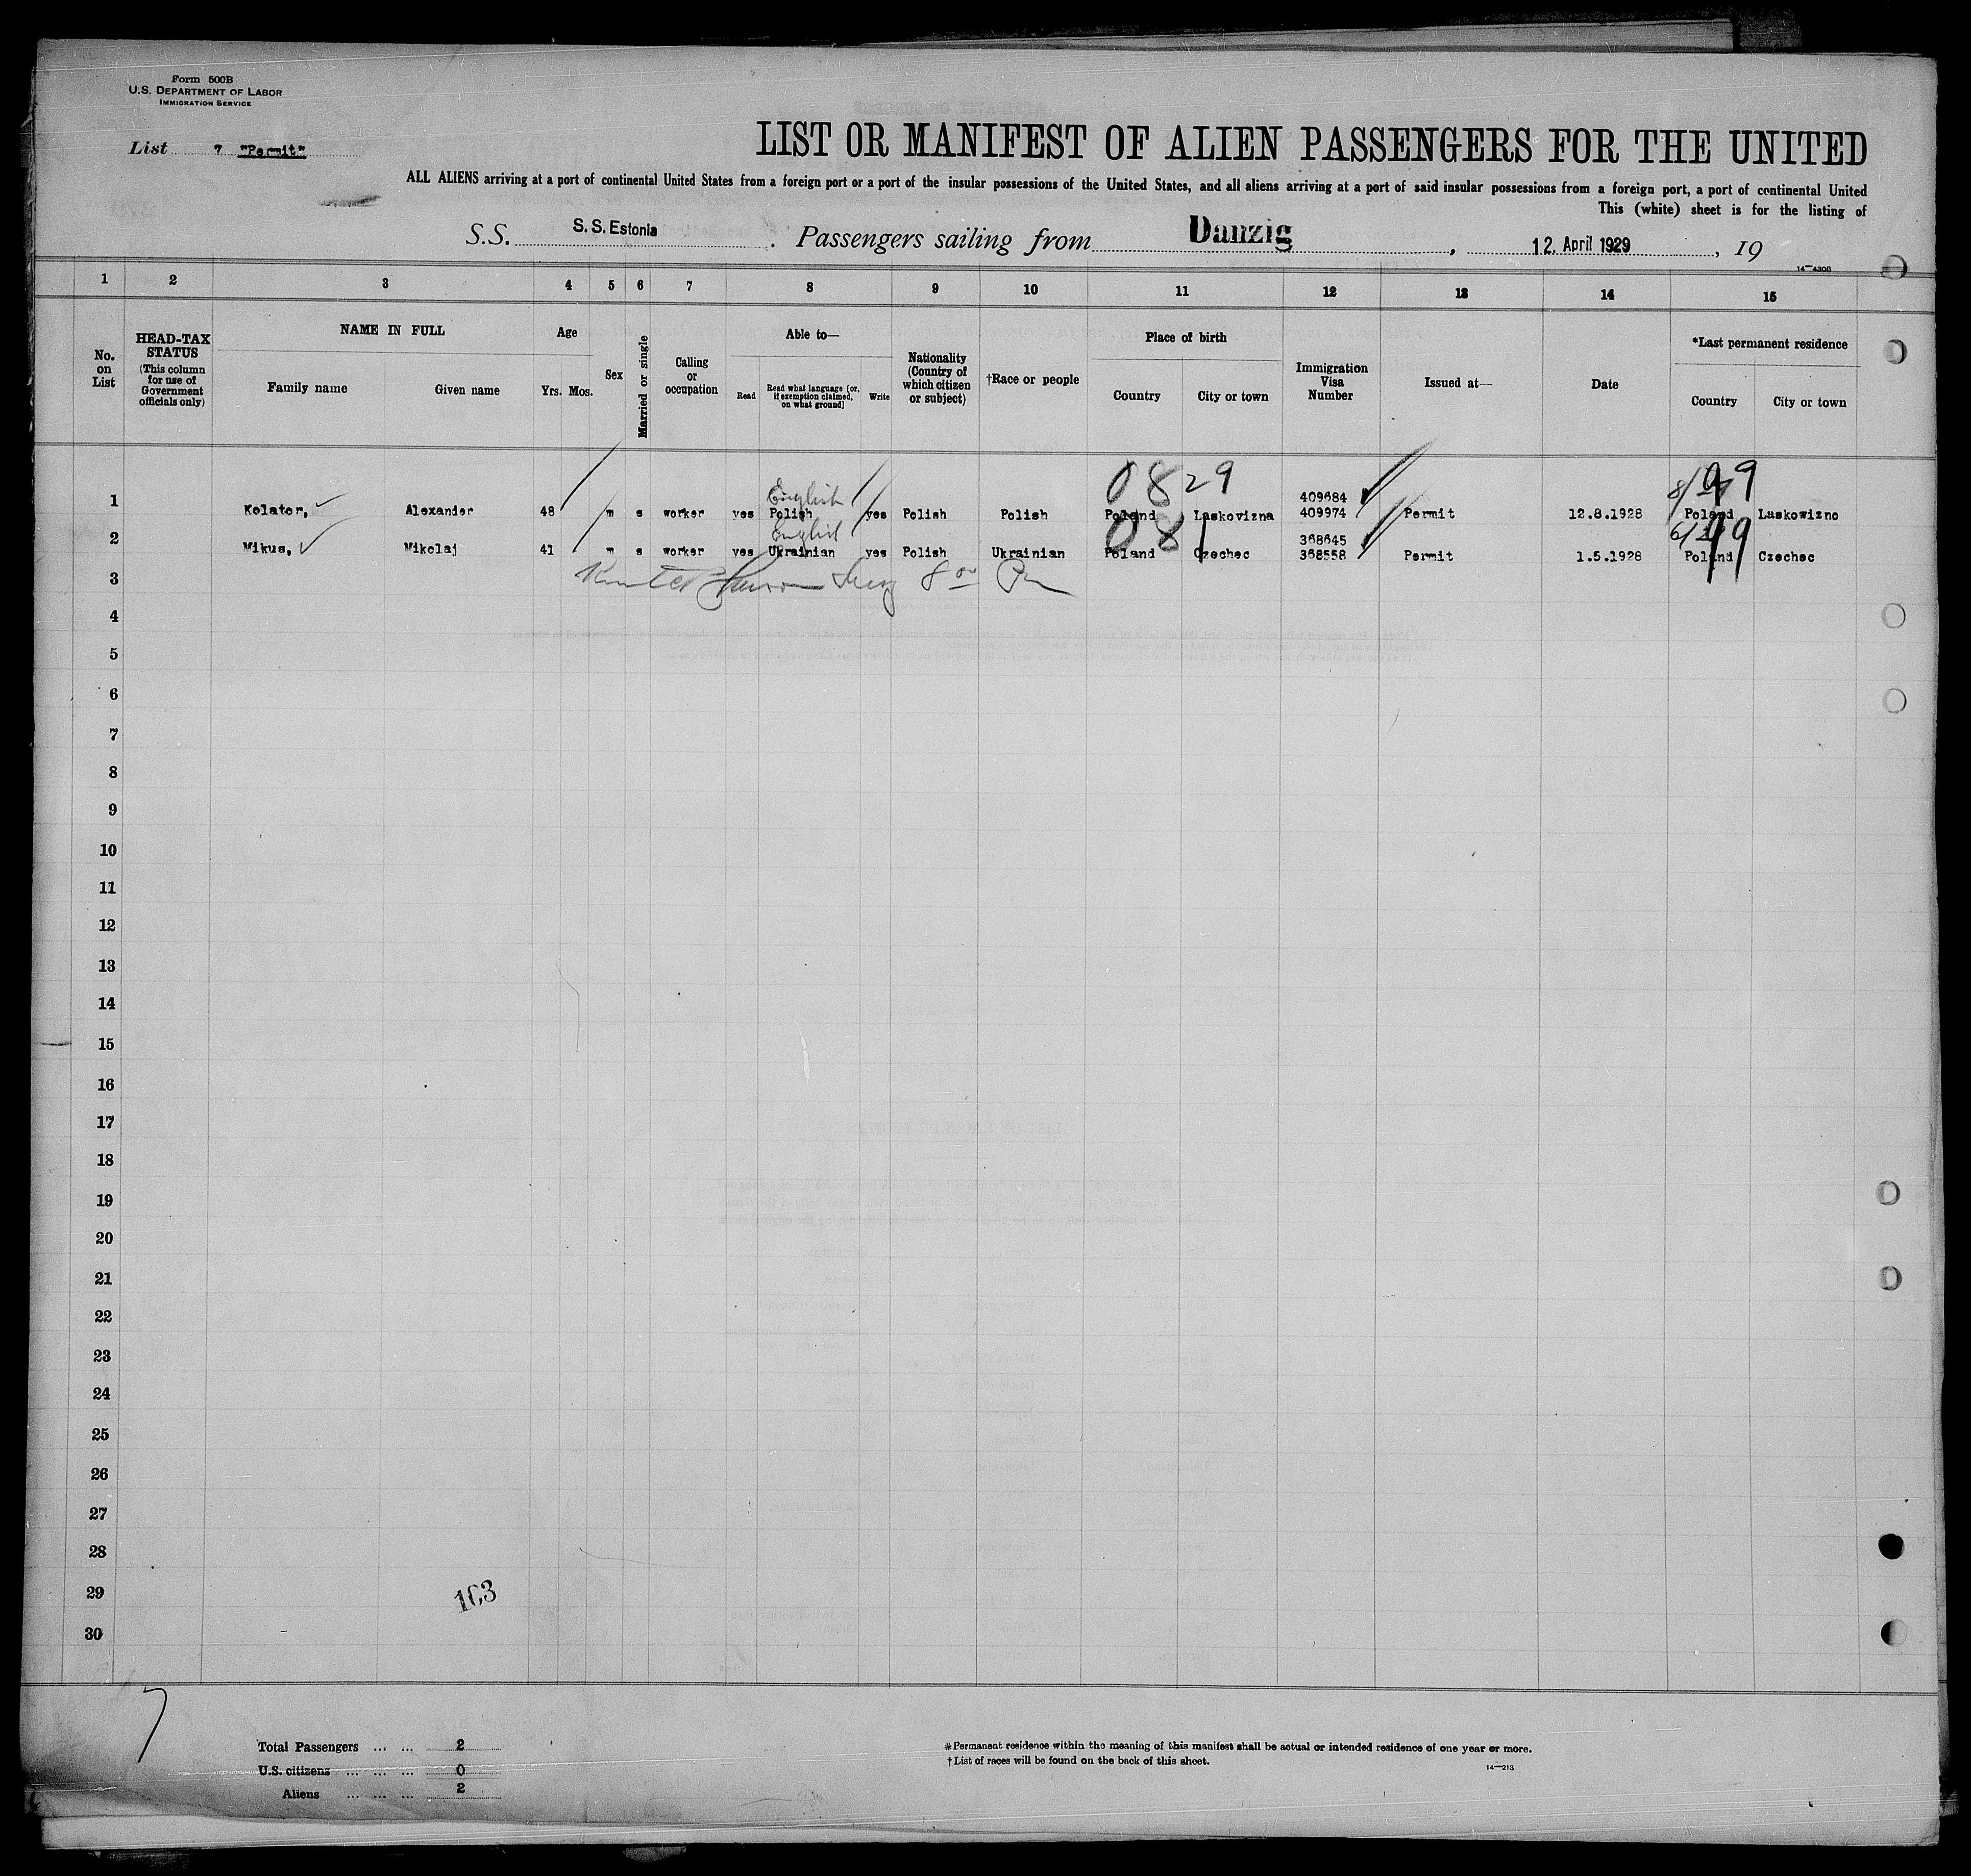 Form 500B
U.S. DEPARTMENT OF LABOR
IMMIGRATION SERVICE
List 7 "Permit"
LIST OR MANIFEST OF ALIEN PASSENGERS FOR THE UNITED
ALL ALIENS arriving at a port of continental United States from a foreign port or a port of the insular possessions of the United States, and all aliens arriving at a port of said insular possessions from a foreign port, a port of continental United
This (white) sheet is for the listing of
S.S. S.S. Estonia. Passengers sailing from Danzig, 12. April 1929, 19
14—4306
1 2 3 4 5 6 7 8 9 10 11 12 13 14 15
No. on List
HEAD-TAX STATUS (This column for use of Government officials only)
NAME IN FULL
Family name Given name
Age
Yrs. Mos.
Sex
Married or single
Calling or occupation
Able to—
Read Read what language [or, if exemption claimed, on what ground] Write
Nationality (Country of which citizen or subject)
†Race or people
Place of birth
Country City or town
Immigration Visa Number
Issued at—
Date
*Last permanent residence
Country City or town
0829
English 409684
1 Kolator, Alexander 48 m s worker yes Polish yes Polish Polish Poland Laskovizna 409974 Permit 12.8.1928 Poland Laskowizno
081
English 368645
2 Mikus, Mikolaj 41 m s worker yes Ukrainian yes Polish Ukrainian Poland Czechec 368558 Permit 1.5.1928 Poland Czechec
3
4
5
6
7
8
9
10
11
12
13
14
15
16
17
18
19
20
21
22
23
24
25
26
27
28
29
103
30
7
Total Passengers ... ... 2
U.S. citizens ... ... ... 0
Aliens ... ... ... 2
*Permanent residence within the meaning of this manifest shall be actual or intended residence of one year or more.
†List of races will be found on the back of this sheet.
14—213